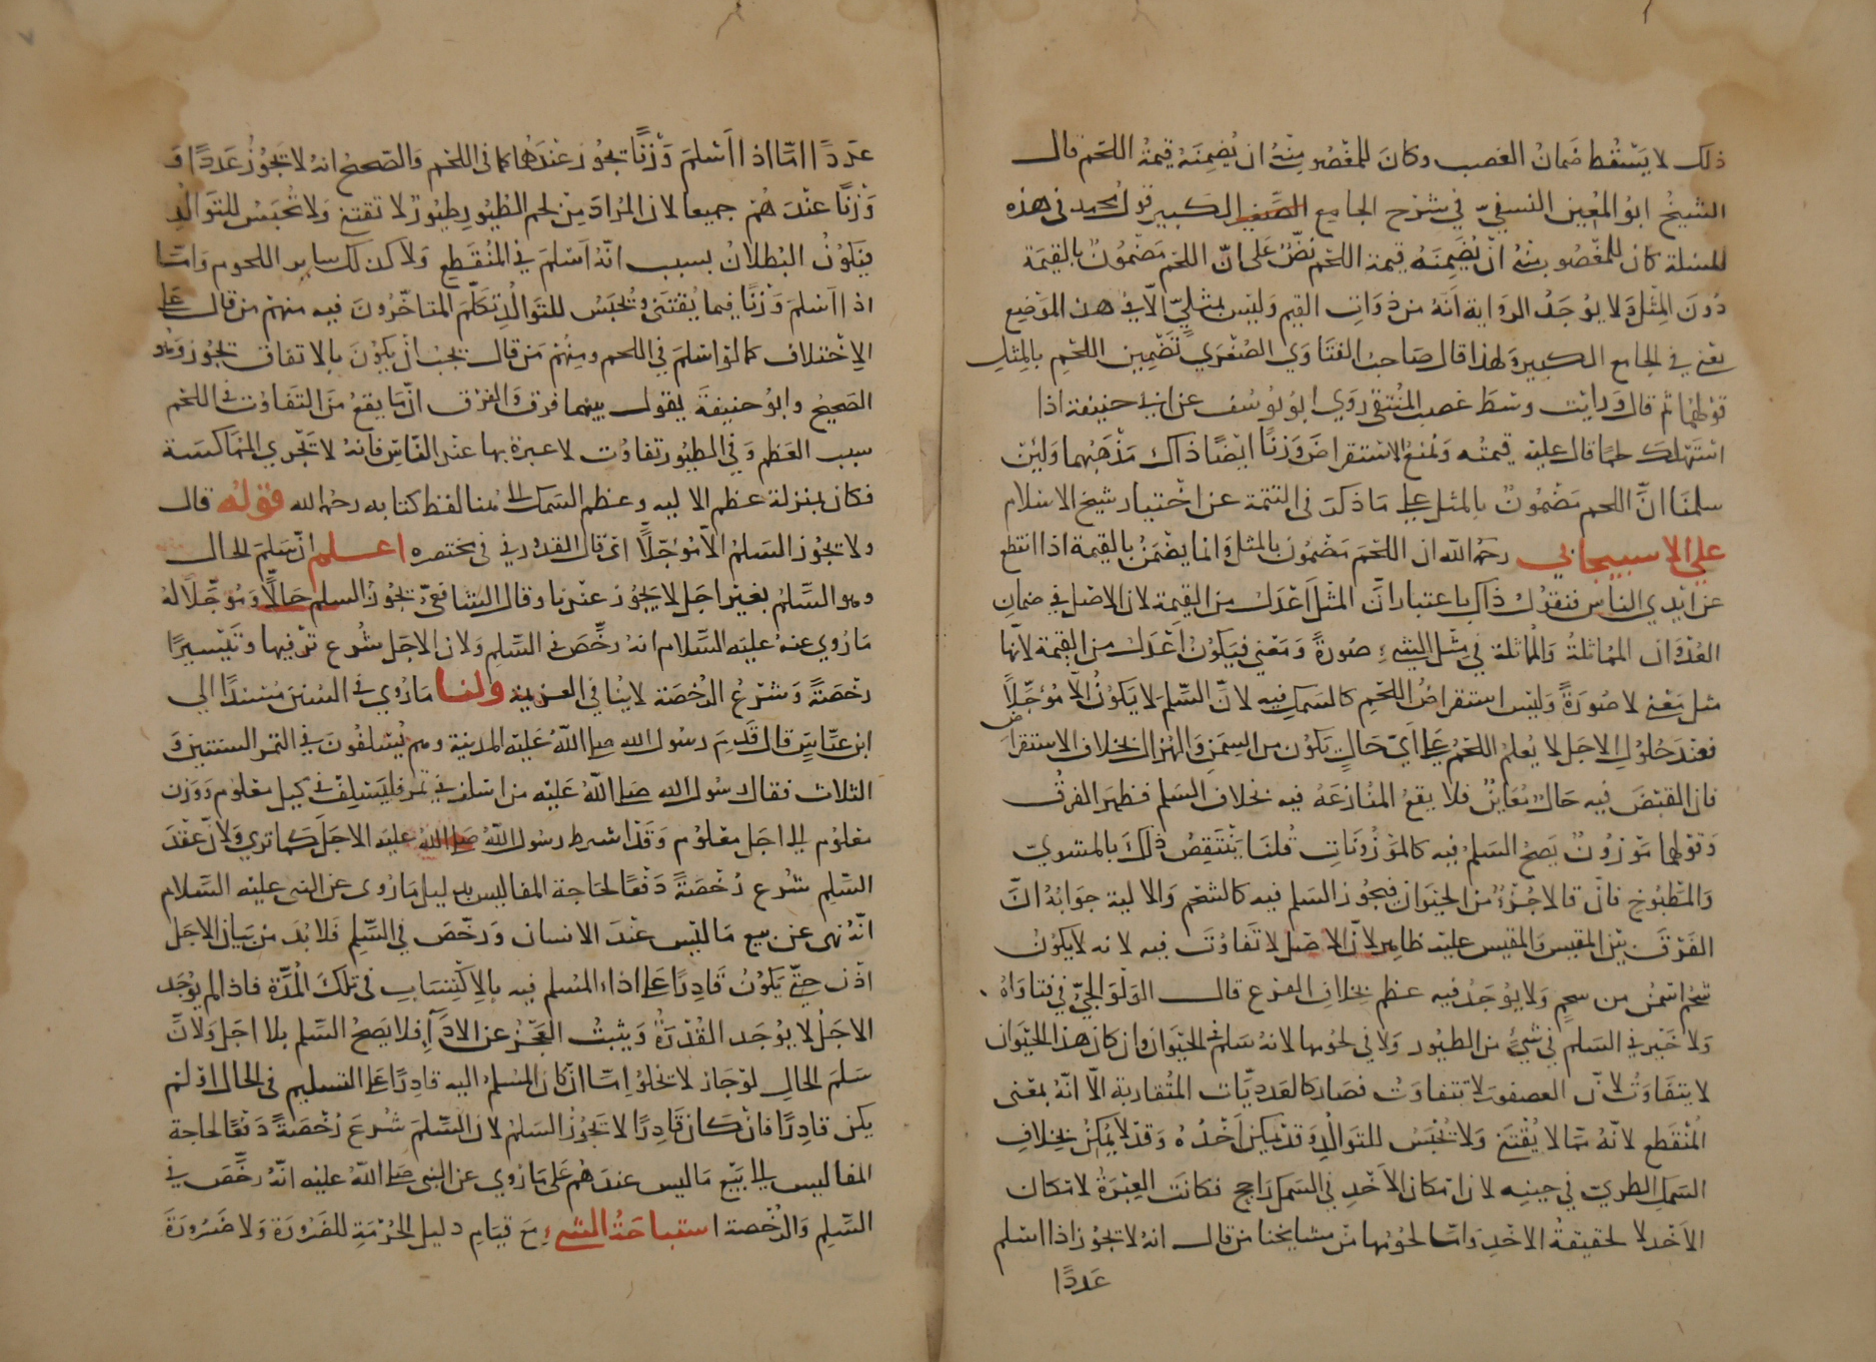 ذلك لا يسقط ضمان الغصب وكان للمغصوب منه ان يضمنه قيمة اللحم قال
الشيخ ابو المعين النسفي في شرح الجامع الكبير قول محمد في هذه
المسئلة كان للمغصوب منه ان يضمنه قيمة اللحم نص على ان اللحم مضمون بالقيمة
دون المثل ولا يوجد الرواية انه من ذوات القيم وليس بمثلي الا في هذا الموضع
يعني في الجامع الكبير ولهذا قال صاحب الفتاوي الصغري تضمين اللحم بالمثل
قولهما ثم قال ورايت وسط غصب المنتقى روي ابو يوسف عن ابي حنيفة اذا
استهلك لحما قال عليه قيمته ومنع الاستقراض وزنا ايضا ذاك مذهبهما ولئن
سلمنا ان اللحم مضمون بالمثل على ما ذكر في التتمة عن اختيار شيخ الاسلام
علي الاسبيجابي رحمه الله ان اللحم مضمون بالمثل وانما يضمن بالقيمة اذا انقطع
عن ايدي الناس فنقول ذاك باعتبار ان المثل اعدل من القيمة لان الاصل في ضمان
العدوان المماثلة والمماثلة في مثل الشيء صورة ومعني فيكون اعدل من القيمة لانها
مثل معني لا صورة وليس استقراض اللحم كالسلم فيه لان السلم لا يكون الا مؤجلا
فعند حلول الاجل لا يعلم اللحم على اي حال يكون من السمن والهزال بخلاف الاستقراض
فان القبض فيه حال معاين فلا يقع المنازعة فيه بخلاف السلم فظهر الفرق
وقولهما موزون يصح السلم فيه كالموزونات قلنا ينتقض ذلك بالمشوي
والمطبوخ فان قالا جزء من الحيوان فيجوز السلم فيه كالشحم والالية جوابه ان
الفرق بين المقيس والمقيس عليه ظاهر لان الاصل لا تفاوت فيه لانه لا يكون
شحم اسمن من شحم ولا يوجد فيه عظم بخلاف الفرع قال الولوالجي في فتاواه
ولا خير في السلم في شيء من الطيور ولا في لحومها لانه سلم في الحيوان وان كان هذا الحيوان
لا يتفاوت لان العصفور لا تتفاوت فصار كالعدديات المتقاربة الا انه بمعنى
المنقطع لانه مما لا يقتنى ولا يحبس للتوالد وقد يمكن اخذه وقد لا يمكن بخلاف
السمك الطري في حينه لان امكان الاخذ في السمك راجح فكانت العبرة لامكان
الاخذ لا لحقيقة الاخذ واما لحومها من مشايخنا من قال انه لا تجوز اذا اسلم
عددا
عددا اما اذا اسلم وزنا يجوز عندهما كما في اللحم والصحيح انه لا يجوز عددا و
وزنا عندهم جميعا لان المراد من لحم الطيور طيور لا تقتنى ولا تحبس للتوالد
فيكون البطلان بسبب انه اسلم في المنقطع ولا كذلك ساير اللحوم واما
اذا اسلم وزنا فيما يقتنى ويحبس للتوالد تكلم المتاخرون فيه منهم من قال على
الاختلاف كما لو اسلم في اللحم ومنهم من قال يجب ان يكون بالاتفاق يجوز وهو
الصحيح وابو حنيفة يقول بينهما فرق والفرق ان ما يقع من التفاوت في اللحم
بسبب العظم وفي الطيور تفاوت لا عبرة بها عند الناس فانه لا تجري المماكسة
فكان بمنزلة عظم الالية وعظم السمك الى هنا لفظ كتابه رحمه الله قوله قال
ولا يجوز السلم الا مؤجلا اي قال القدوري في مختصره اعلم ان سلم الحال
وهو السلم بغير اجل لا يجوز عندنا وقال الشافعي يجوز السلم حالا ومؤجلا له
ما روي عنه عليه السلام انه رخص في السلم ولان الاجل شرع ترفيها وتيسيرا
رخصة وشرع الرخصة لا ينافي العزيمة ولنا ما روي في السنن مسندا الي
ابن عباس قال قدم رسول الله صلى الله عليه المدينة وهم يسلفون في التمر السنتين و
الثلاث فقال رسول الله صلى الله عليه من اسلف في تمر فليسلف في كيل معلوم ووزن
معلوم الى اجل معلوم وقد اشرط رسول الله صلى الله عليه الاجل كما تري ولان عقد
السلم شرع رخصة دفعا لحاجة المفاليس بدليل ما روى عن النبي عليه السلام
انه نهى عن بيع ما ليس عند الانسان ورخص في السلم فلا بد من بيان الاجل
اذن حتى يكون قادرا على اداء المسلم فيه بالاكتساب في تلك المدة فاذا لم يوجد
الاجل لا يوجد القدرة ويثبت العجز عن الاداء فلا يصح السلم بلا اجل ولان
سلم الحال لو جاز لا تخلو اما ان كان المسلم اليه قادرا على التسليم في الحال او لم
يكن قادرا فان كان قادرا لا يجوز السلم لان السلم شرع رخصة دفعا لحاجة
المفاليس الى بيع ما ليس عندهم على ما روي عن النبي صلى الله عليه انه رخص في
السلم والرخصة استباحة الشيء مع قيام دليل الحرمة للضرورة ولا ضرورة